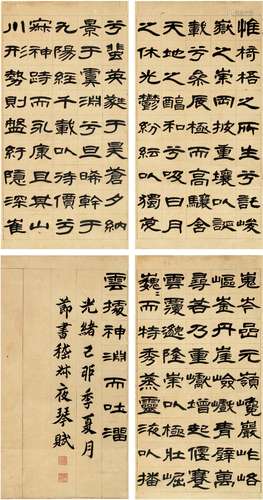 惟椅梧之所生兮託峻
嶽之崇岡披重壤以誕
載兮參辰極而高驤含
天地之醇和兮吸日月
之休光鬱紛紜以獨茂
兮蜚英蕤于昊蒼夕納
景于虞淵兮旦晞幹于
九陽經千載以待價兮
寂神跱而永康且其山
川形勢則盤紆隱深崔
嵬岑嵒亙嶺巉巖岞崿
嶇崟丹崖嶮巇青壁萬
尋若乃重巘增起偃蹇
雲覆邈隆崇以極壯崛
巍巍而特秀蒸靈液以播
雲據神淵而吐溜
光緒己卯季夏月
節書嵇叔夜琴賦